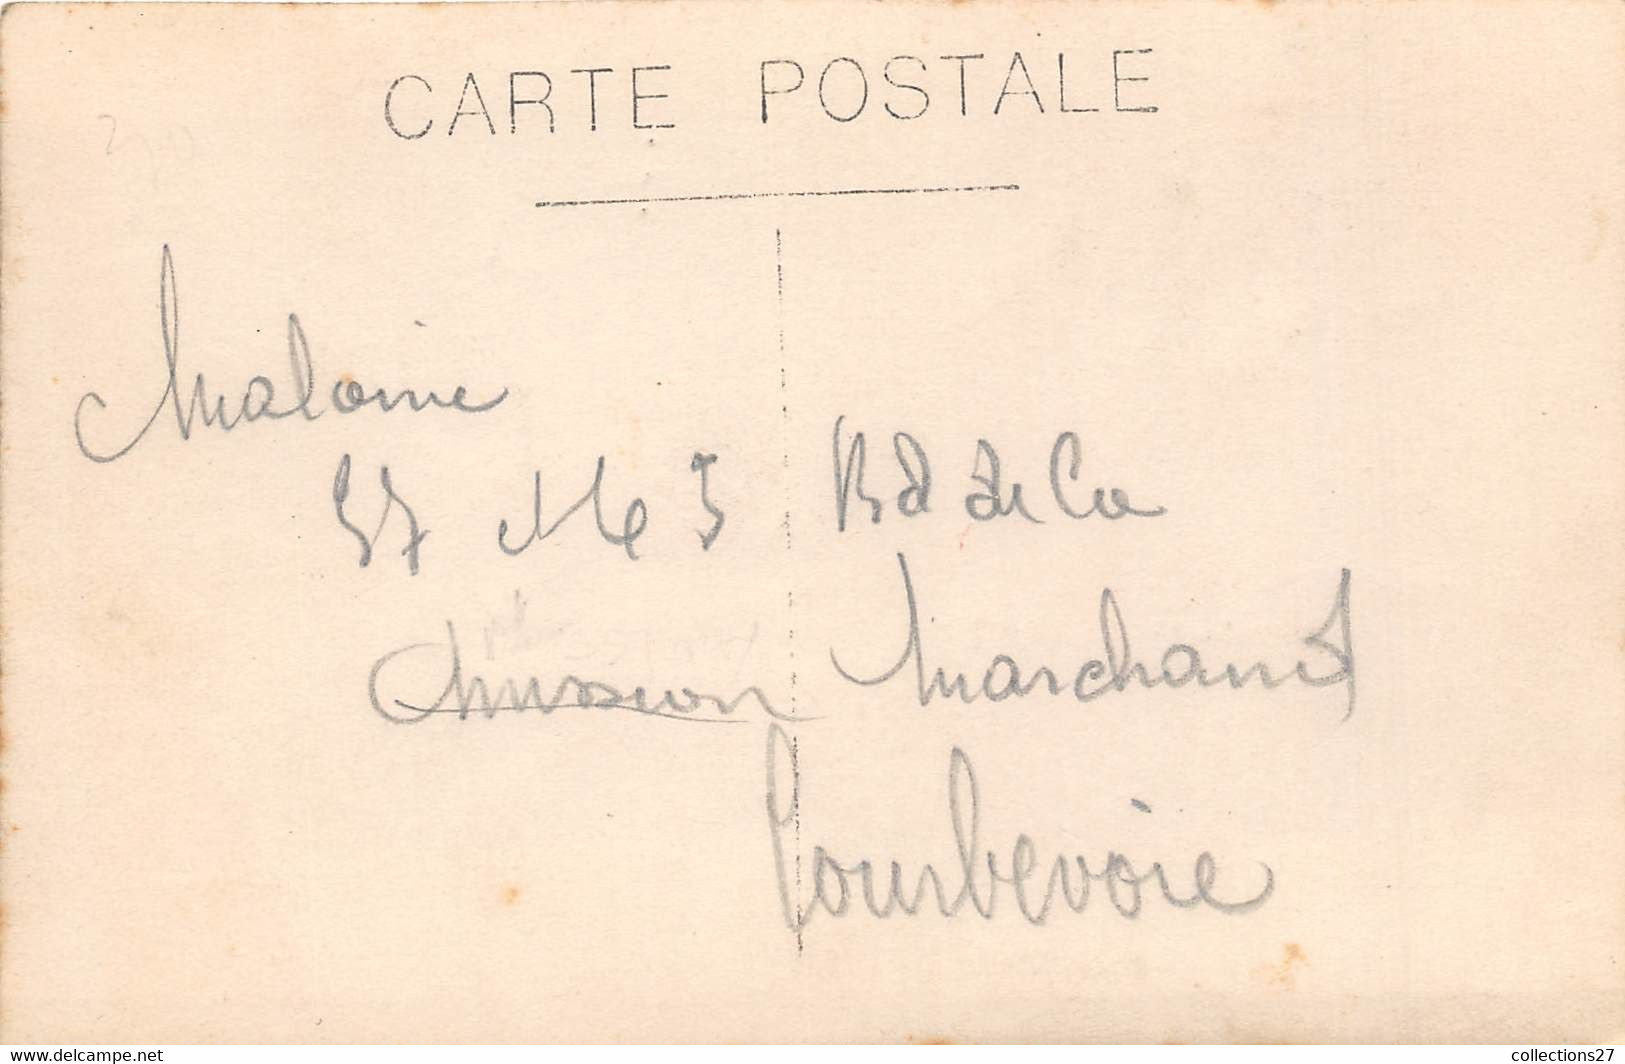 CARTE POSTALE
Malaine
57 Bd de la
Mission Marchand
Courbevoie
www.delcampe.net
collections27